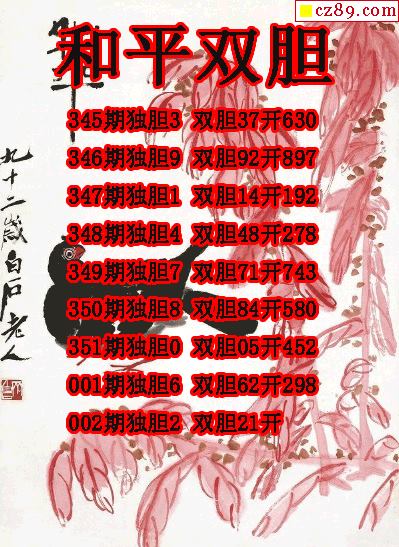 cz89.com
和平双胆
345期独胆3 双胆37开630
346期独胆9 双胆92开897
347期独胆1 双胆14开192
348期独胆4 双胆48开278
349期独胆7 双胆71开743
350期独胆8 双胆84开580
351期独胆0 双胆05开452
001期独胆6 双胆62开298
002期独胆2 双胆21开
九十二岁白石老人